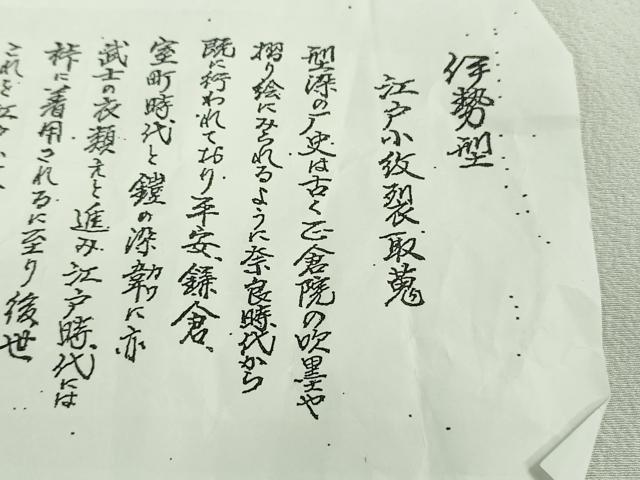 伊勢型
江戸小紋裂取蒐
型染の歴史は古く正倉院の吹墨や
摺り絵にみられるように奈良時代から
既に行われており平安、鎌倉、
室町時代と鎧の染韋に亦
カワ
武士の衣類えと進み江戸時代には
裃に着用されるに至り後世
これを江戸小